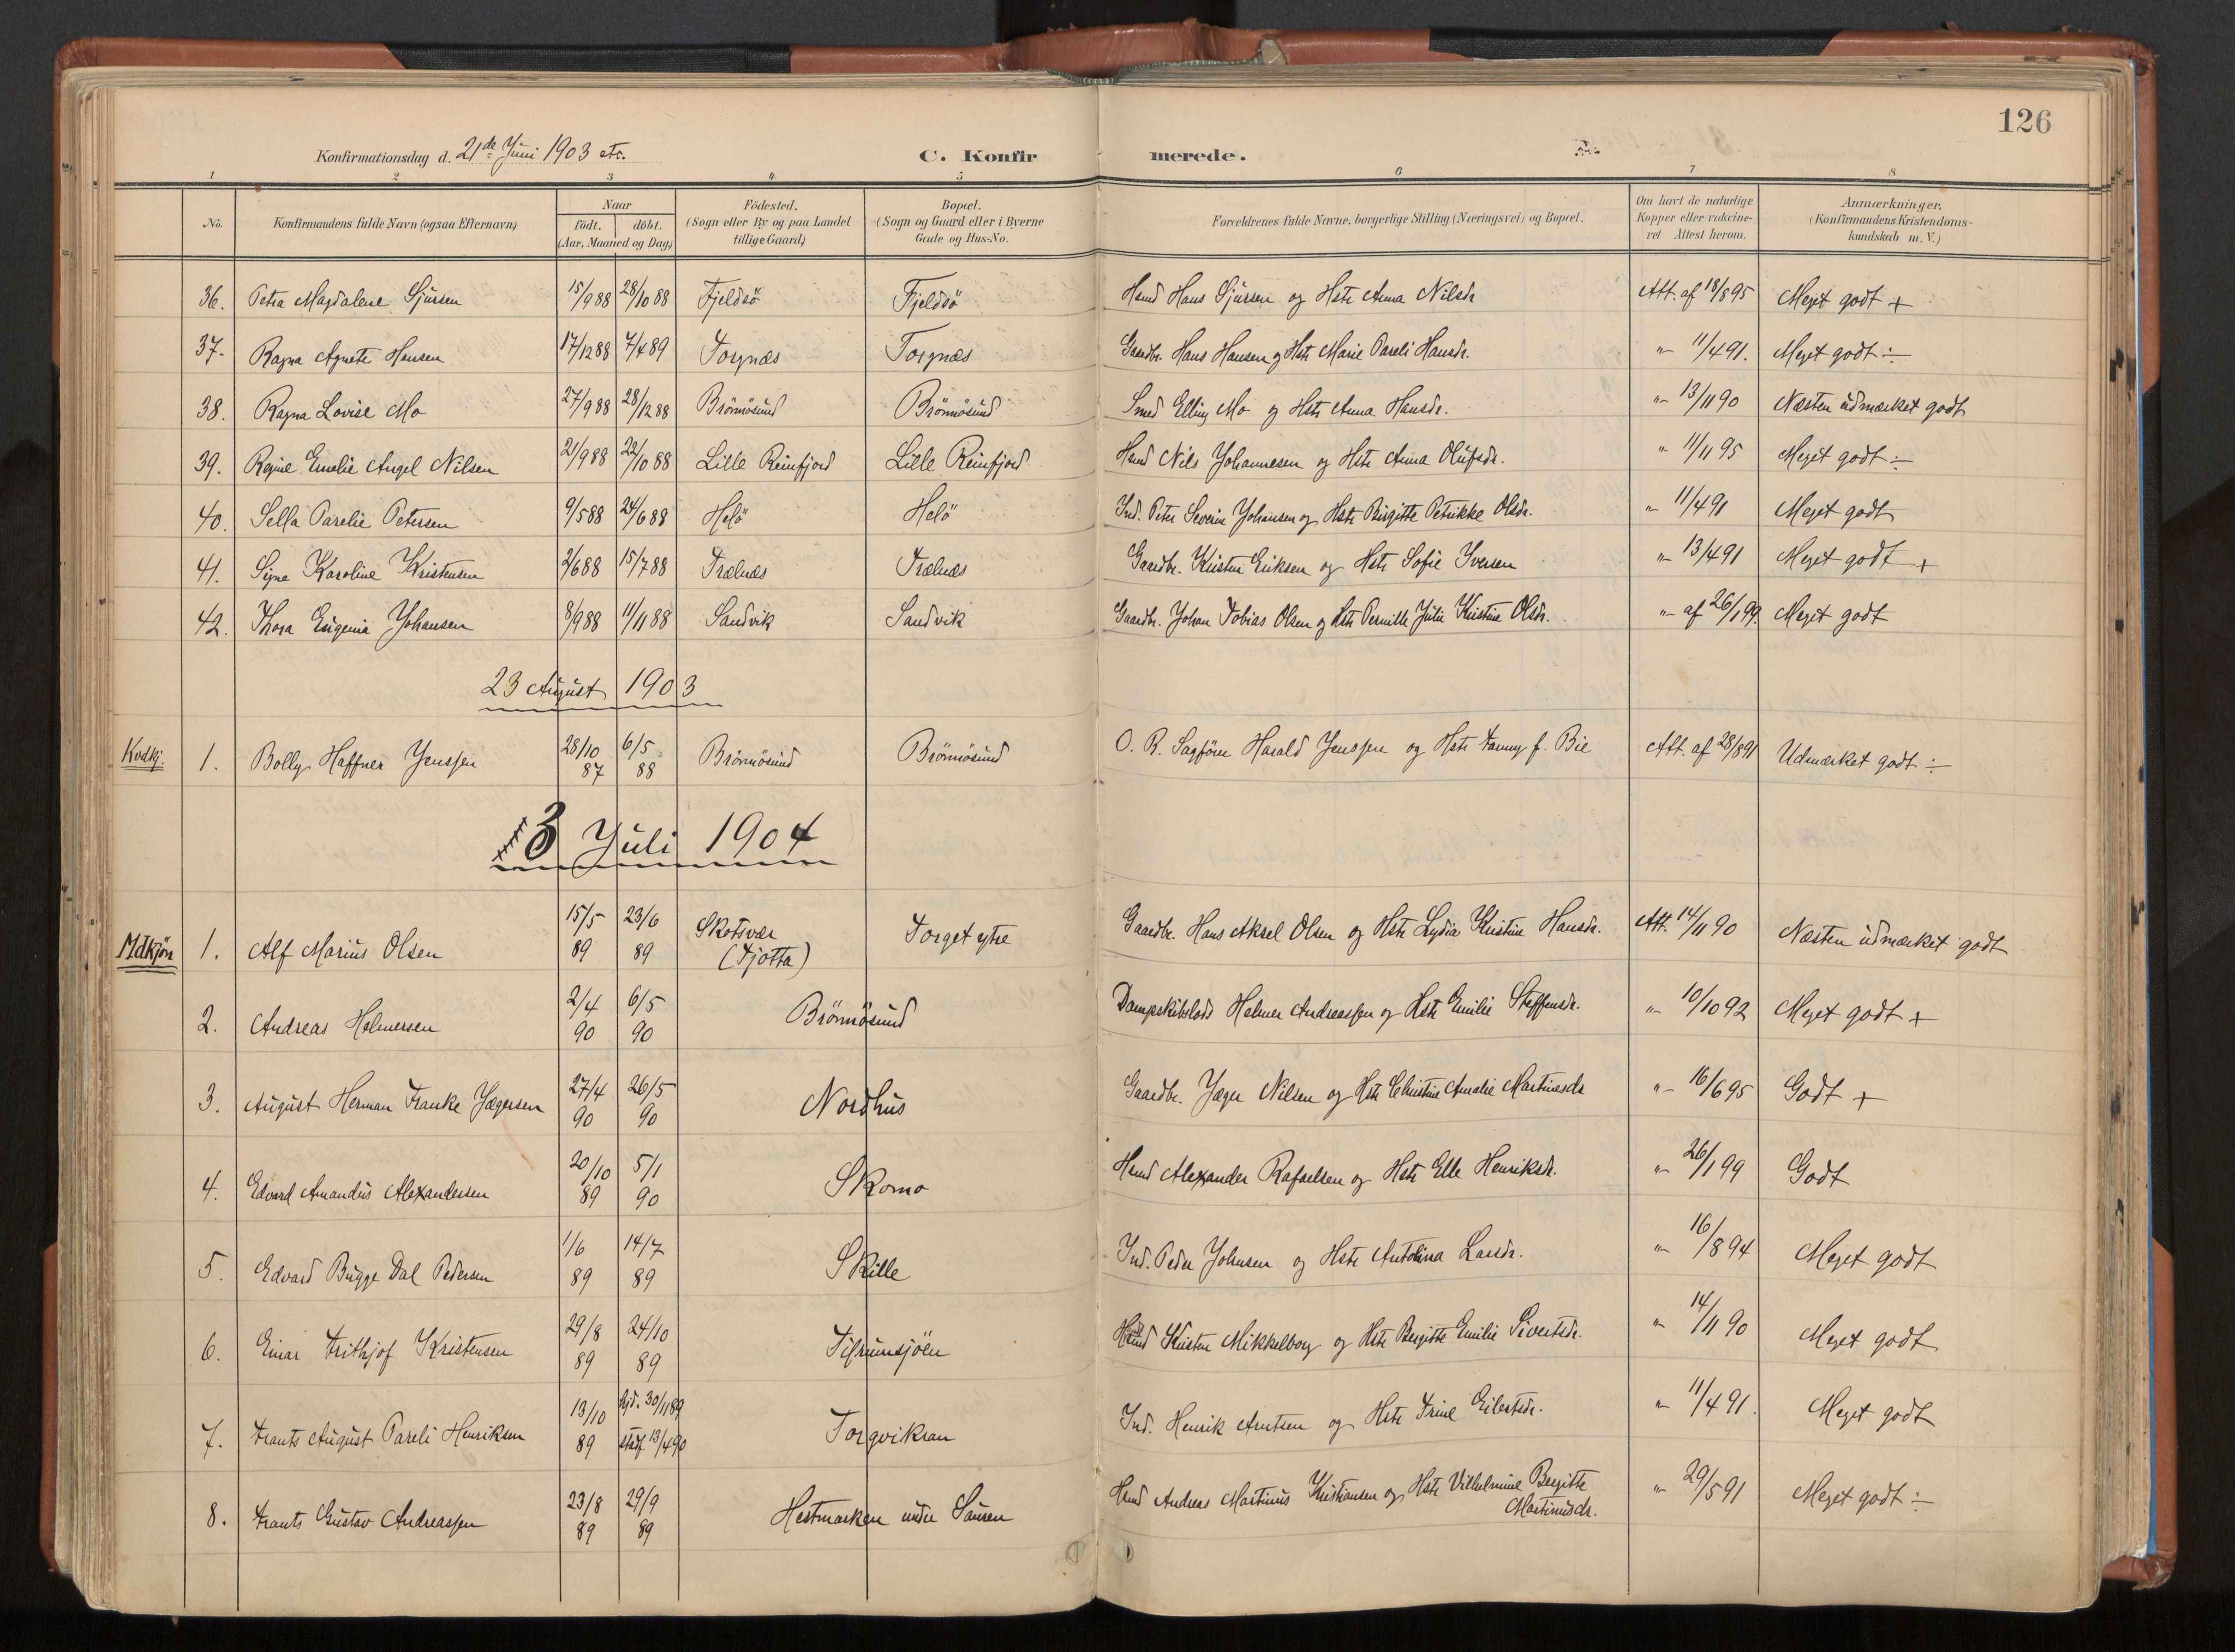 126
Konfirmationsdag d. 21de Juni 1903 etc. C. Konfir merede.
1 2 3 4 5 6 7 8
No. Konfirmandens fulde Navn (ogsaa Efternavn) Naar Födt. döbt. (Aar, Maaned og Dag) Födested. (Sogn eller By og paa Landet tillige Gaard) Bopæl. (Sogn og Gaard eller i Byerne Gade og Hus-No. Forældrenes fulde Navne, borgerlige Stilling (Næringsvei) og Bopæl. Om havt de naturlige Kopper eller vakcineret Attest herom. Anmærkninger. (Konfirmandens Kristendomskundskab m. V.)
36. Petra Magdalene Sjursen 15/9 88 28/10 88 Fjeldsö Fjeldsö Hmd Hans Sjursen og Hstr Anna Nilsdr Att. af 18/8 95 Meget godt +
37. Ragna Agnete Hansen 17/12 88 7/4 89 Torgnæs Torgnæs Gaardbr. Hans Hansen og Hstr Marie Pareli Hansdr. " 11/4 91. Meget godt ÷
38. Ragna Lovise Mo 27/9 88 28/12 88 Brönnösund Brönnösund Smed Elling Mo og Hstr Anna Hansdr. " 13/11 90 Næsten udmærket godt
39. Regine Emelie Angel Nilsen 21/9 88 22/10 88 Lille Reinfjord Lille Reinfjord Hmd Nils Johannesen og Hstr Anna Olufsdr. " 11/11 95 Meget godt ÷
40. Sella Parelie Petersen 9/5 88 24/6 88 Helö Helö Ind. Peter Severin Johansen og Hstr Birgitte Petrikke Olsdr. " 11/4 91 Meget godt
41. Signe Karoline Kristensen 2/6 88 15/7 88 Trælnæs Trælnæs Gaardbr. Kristen Eriksen og Hstr Sofie Iversen " 13/4 91 Meget godt +
42. Thora Eugenia Johansen 8/9 88 11/11 88 Sandvik Sandvik Gaardbr. Johan Tobias Olsen og Hstr Pernille Julie Kristine Olsdr. " af 26/1 99. Meget godt
23 August 1903
Kvdkj. 1. Bolly Haffner Jenssen 28/10 87 6/5 88 Brönnösund Brönnösund O. R. Sagförer Harald Jenssen og Hstr Fanny f. Bie Att. af 28/8 91 Udmærket godt ÷
3 Juli 1904
Mdkjön 1. Alf Marius Olsen 15/5 89 23/6 89 Skotsvær (Tjotta) Torget ytre Gaardbr. Hans Aksel Olsen og Hstr Lydia Kristine Hansdr. Att. 14/11 90 Næsten udmærket godt
2. Andreas Helmersen 2/4 90 6/5 90 Brönnösund Dampskibslods Helmer Andreassen og Hstr Emilie Steffensdr. " 10/10 92 Meget godt +
3. August Herman Franke Jægersen 27/4 90 26/5 90 Nordhus Gaardbr. Jæger Nilsen og Hstr Christine Amalie Martinusdr " 16/6 95 Godt +
4. Edvard Amandus Alexandersen 20/10 89 5/1 90 Skomo Hmd Alexander Rafaelsen og Hstr Elle Henriksdr. " 26/1 99 Godt
5. Edvard Bugge Dal Pedersen 1/6 89 14/7 89 Skille Ind. Peder Johnsen og Hstr Antolina Larsdr. " 16/8 94 Meget godt
6. Einar Frithjof Kristensen 29/8 89 24/10 89 Tilremsjöen Hmd Kristen Mikkelborg og Hstr Bergitte Emilie Sivertsdr. " 14/11 90 Meget godt
7. Frants August Pareli Henriksen 13/10 89 hjd. 30/11 89 stadf. 13/4 90 Torgvikran Ind. Henrik Arntsen og Hstr Trine Eilertsdr. " 11/4 91. Meget godt
8. Frants Gustav Andreassen 23/8 89 29/9 89 Hestmarken under Sausen Hmd Andreas Martinus Kristiansen og Hstr Vilhelmine Bergitte Martinusdr. " 29/5 91 Meget godt ÷